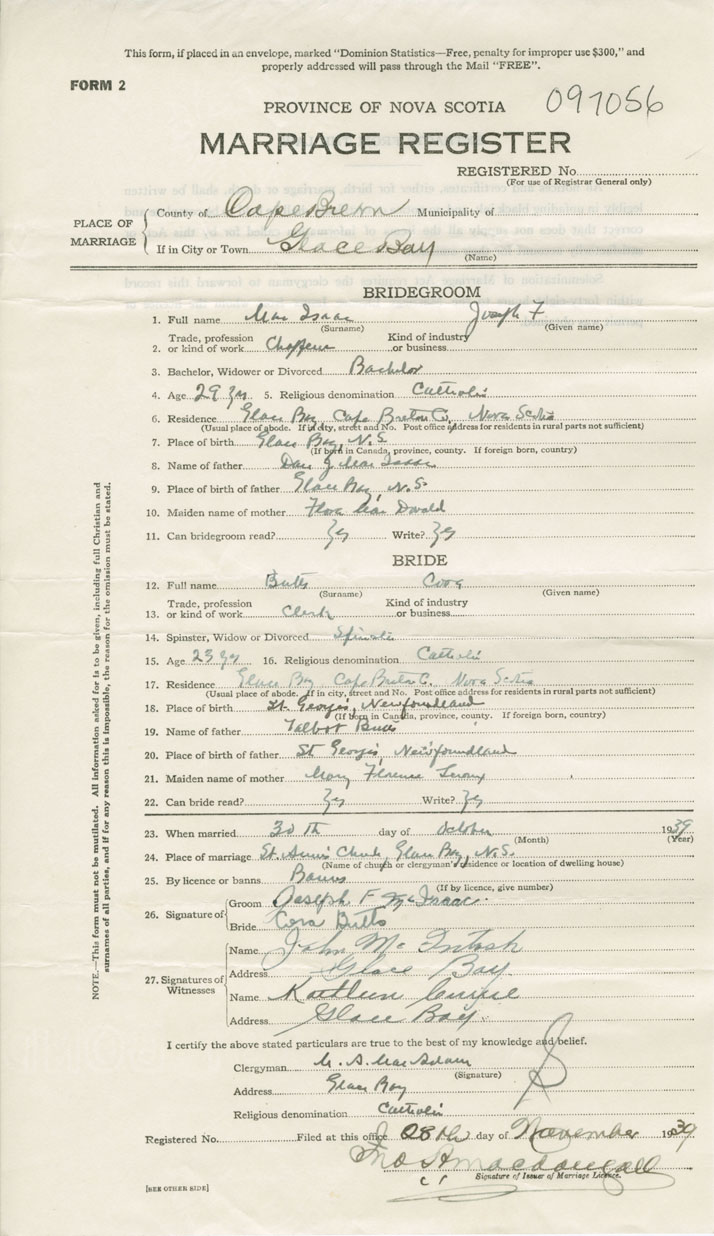 This form, if placed in an envelope, marked "Dominion Statistics—Free, penalty for improper use $300," and
properly addressed will pass through the Mail "FREE".
FORM 2
PROVINCE OF NOVA SCOTIA 097056
MARRIAGE REGISTER
REGISTERED No.
(For use of Registrar General only)
PLACE OF MARRIAGE
County of Cape Breton Municipality of
If in City or Town Glace Bay
(Name)
BRIDEGROOM
1. Full name Mac Isaac Joseph F
(Surname) (Given name)
2. Trade, profession or kind of work Kind of industry or business
3. Bachelor, Widower or Divorced Bachelor
4. Age 29 yrs 5. Religious denomination Catholic
6. Residence Glace Bay Cape Breton Co. Nova Scotia
(Usual place of abode. If in city, street and No. Post office address for residents in rural parts not sufficient)
7. Place of birth Glace Bay, N.S.
(If born in Canada, province, county. If foreign born, country)
8. Name of father Dan J Mac Isaac
9. Place of birth of father Glace Bay, N.S.
10. Maiden name of mother Flora Mac Donald
11. Can bridegroom read? Yes Write? Yes
BRIDE
12. Full name Butts Cora
(Surname) (Given name)
13. Trade, profession or kind of work Clerk Kind of industry or business
14. Spinster, Widow or Divorced Spinster
15. Age 23 yrs 16. Religious denomination Catholic
17. Residence Glace Bay Cape Breton C. Nova Scotia
(Usual place of abode. If in city, street and No. Post office address for residents in rural parts not sufficient)
18. Place of birth St. George's, Newfoundland
(If born in Canada, province, county. If foreign born, country)
19. Name of father Talbot Butts
20. Place of birth of father St George's, Newfoundland
21. Maiden name of mother Mary Florence
22. Can bride read? Yes Write? Yes
23. When married 30 th day of October 1939
(Month) (Year)
24. Place of marriage St. Ann's Church, Glace Bay, N.S.
(Name of church or clergyman's residence or location of dwelling house)
25. By licence or banns Banns
(If by licence, give number)
26. Signature of
Groom Joseph F McIsaac
Bride Cora Butts
27. Signatures of Witnesses
Name John McIntosh
Address Glace Bay.
Name Kathleen Currie
Address Glace Bay.
I certify the above stated particulars are true to the best of my knowledge and belief.
Clergyman M. A. MacAdam
(Signature)
Address Glace Bay
Religious denomination Catholic
Registered No. Filed at this office 28th day of November 1939
Jno A Macdougall
Signature of Issuer of Marriage Licence.
[SEE OTHER SIDE]
NOTE.—This form must not be mutilated. All information asked for is to be given, including full Christian and
surnames of all parties, and if for any reason this is impossible, the reason for the omission must be stated.